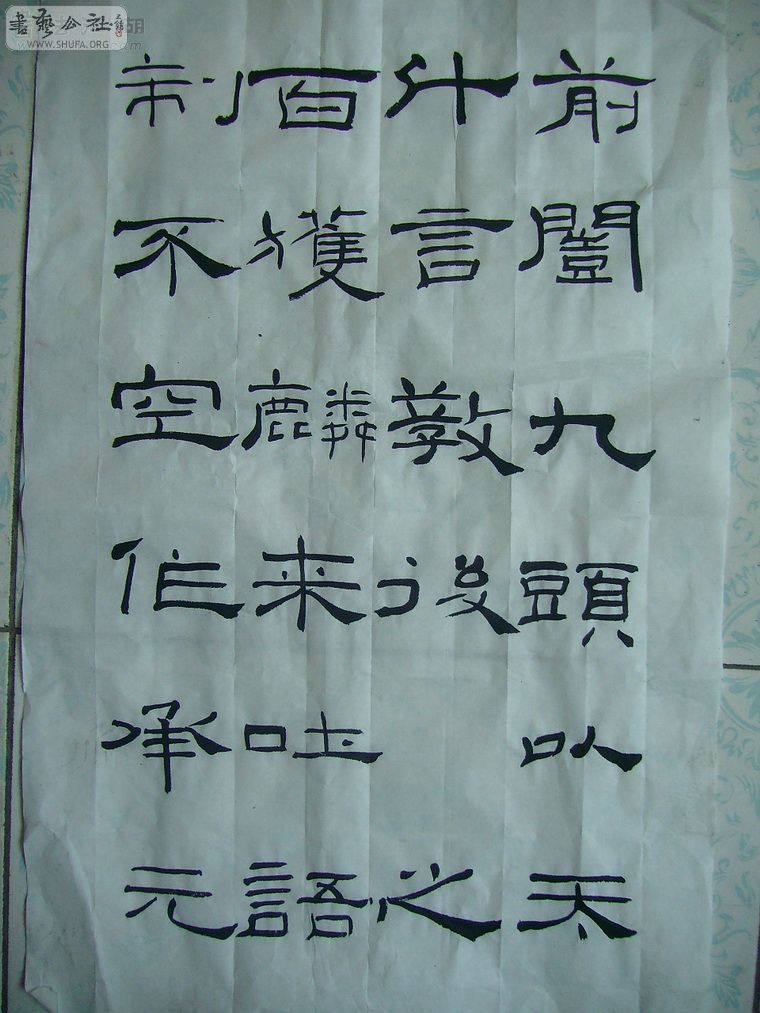 書藝公社
WWW.SHUFA.ORG
前闓九頭以天
什言教後之
百獲麟来吐語
制不空作承元